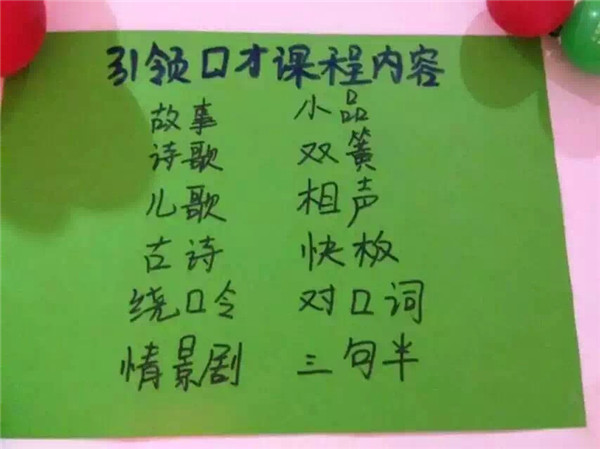 引领口才课程内容
故事 小品
诗歌 双簧
儿歌 相声
古诗 快板
绕口令 对口词
情景剧 三句半